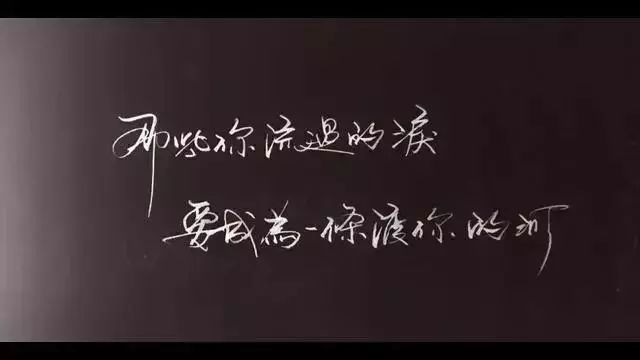 那些你流過的淚
要成為一條渡你的河